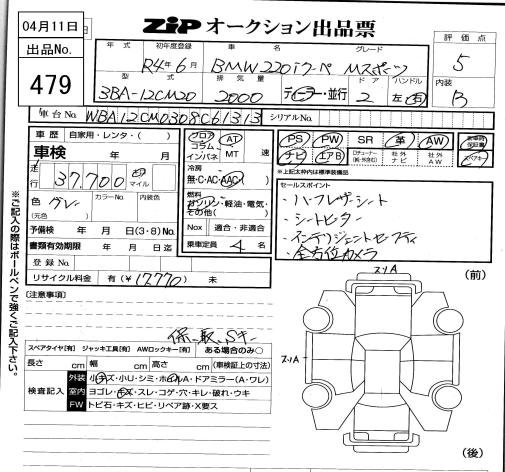 04月11日
出品No.
479
ZIP オークション出品票
年式 初年度登録 車名 グレード
R4年6月 BMW220iクーペ Mスポーツ
型式 排気量 ドア ハンドル
3BA-12CM20 2000 ディーラー・並行 2 左・右
評価点
5
内装
B
車台No. WBA12CM0308C61313 シリアルNo.
車歴 自家用・レンタ・( )
車検 年 月
走行 37,700 km マイル
色 グレー カラーNo. 内装色
(元色)
予備検 年 月 日(3・8)No.
書類有効期限 年 月 日迄
登録No.
リサイクル料金 有(¥17770) 未
フロア コラム インパネ AT MT 速
冷房
無・C・AC・AAC
燃料
ガソリン・軽油・電気・その他( )
Nox 適合・非適合
乗車定員 4 名
PS PW SR 革 AW
ナビ エアB 社外ナビ 社外AW
※上記太枠内は標準装備品
セールスポイント
・ハーフレザーシート
・シートヒーター
・インテリジェントセーフティ
・全方位カメラ
※ご記入の際はボールペンで強くご記入下さい。
(注意事項)
保、取、Sキー
スペアタイヤ[有] ジャッキ工具[有] AWロックキー[有] ある場合のみ○
長さ cm 幅 cm 高さ cm (車検証上の寸法)
検査記入
外装 小キズ・小U・シミ・ホイルA・ドアミラー(A・ワレ)
室内 ヨゴレ・キズ・スレ・コゲ・穴・キレ・破れ・ウキ
FW トビ石・キズ・ヒビ・リペア跡・X要ス
スリA
(前)
スリA
(後)